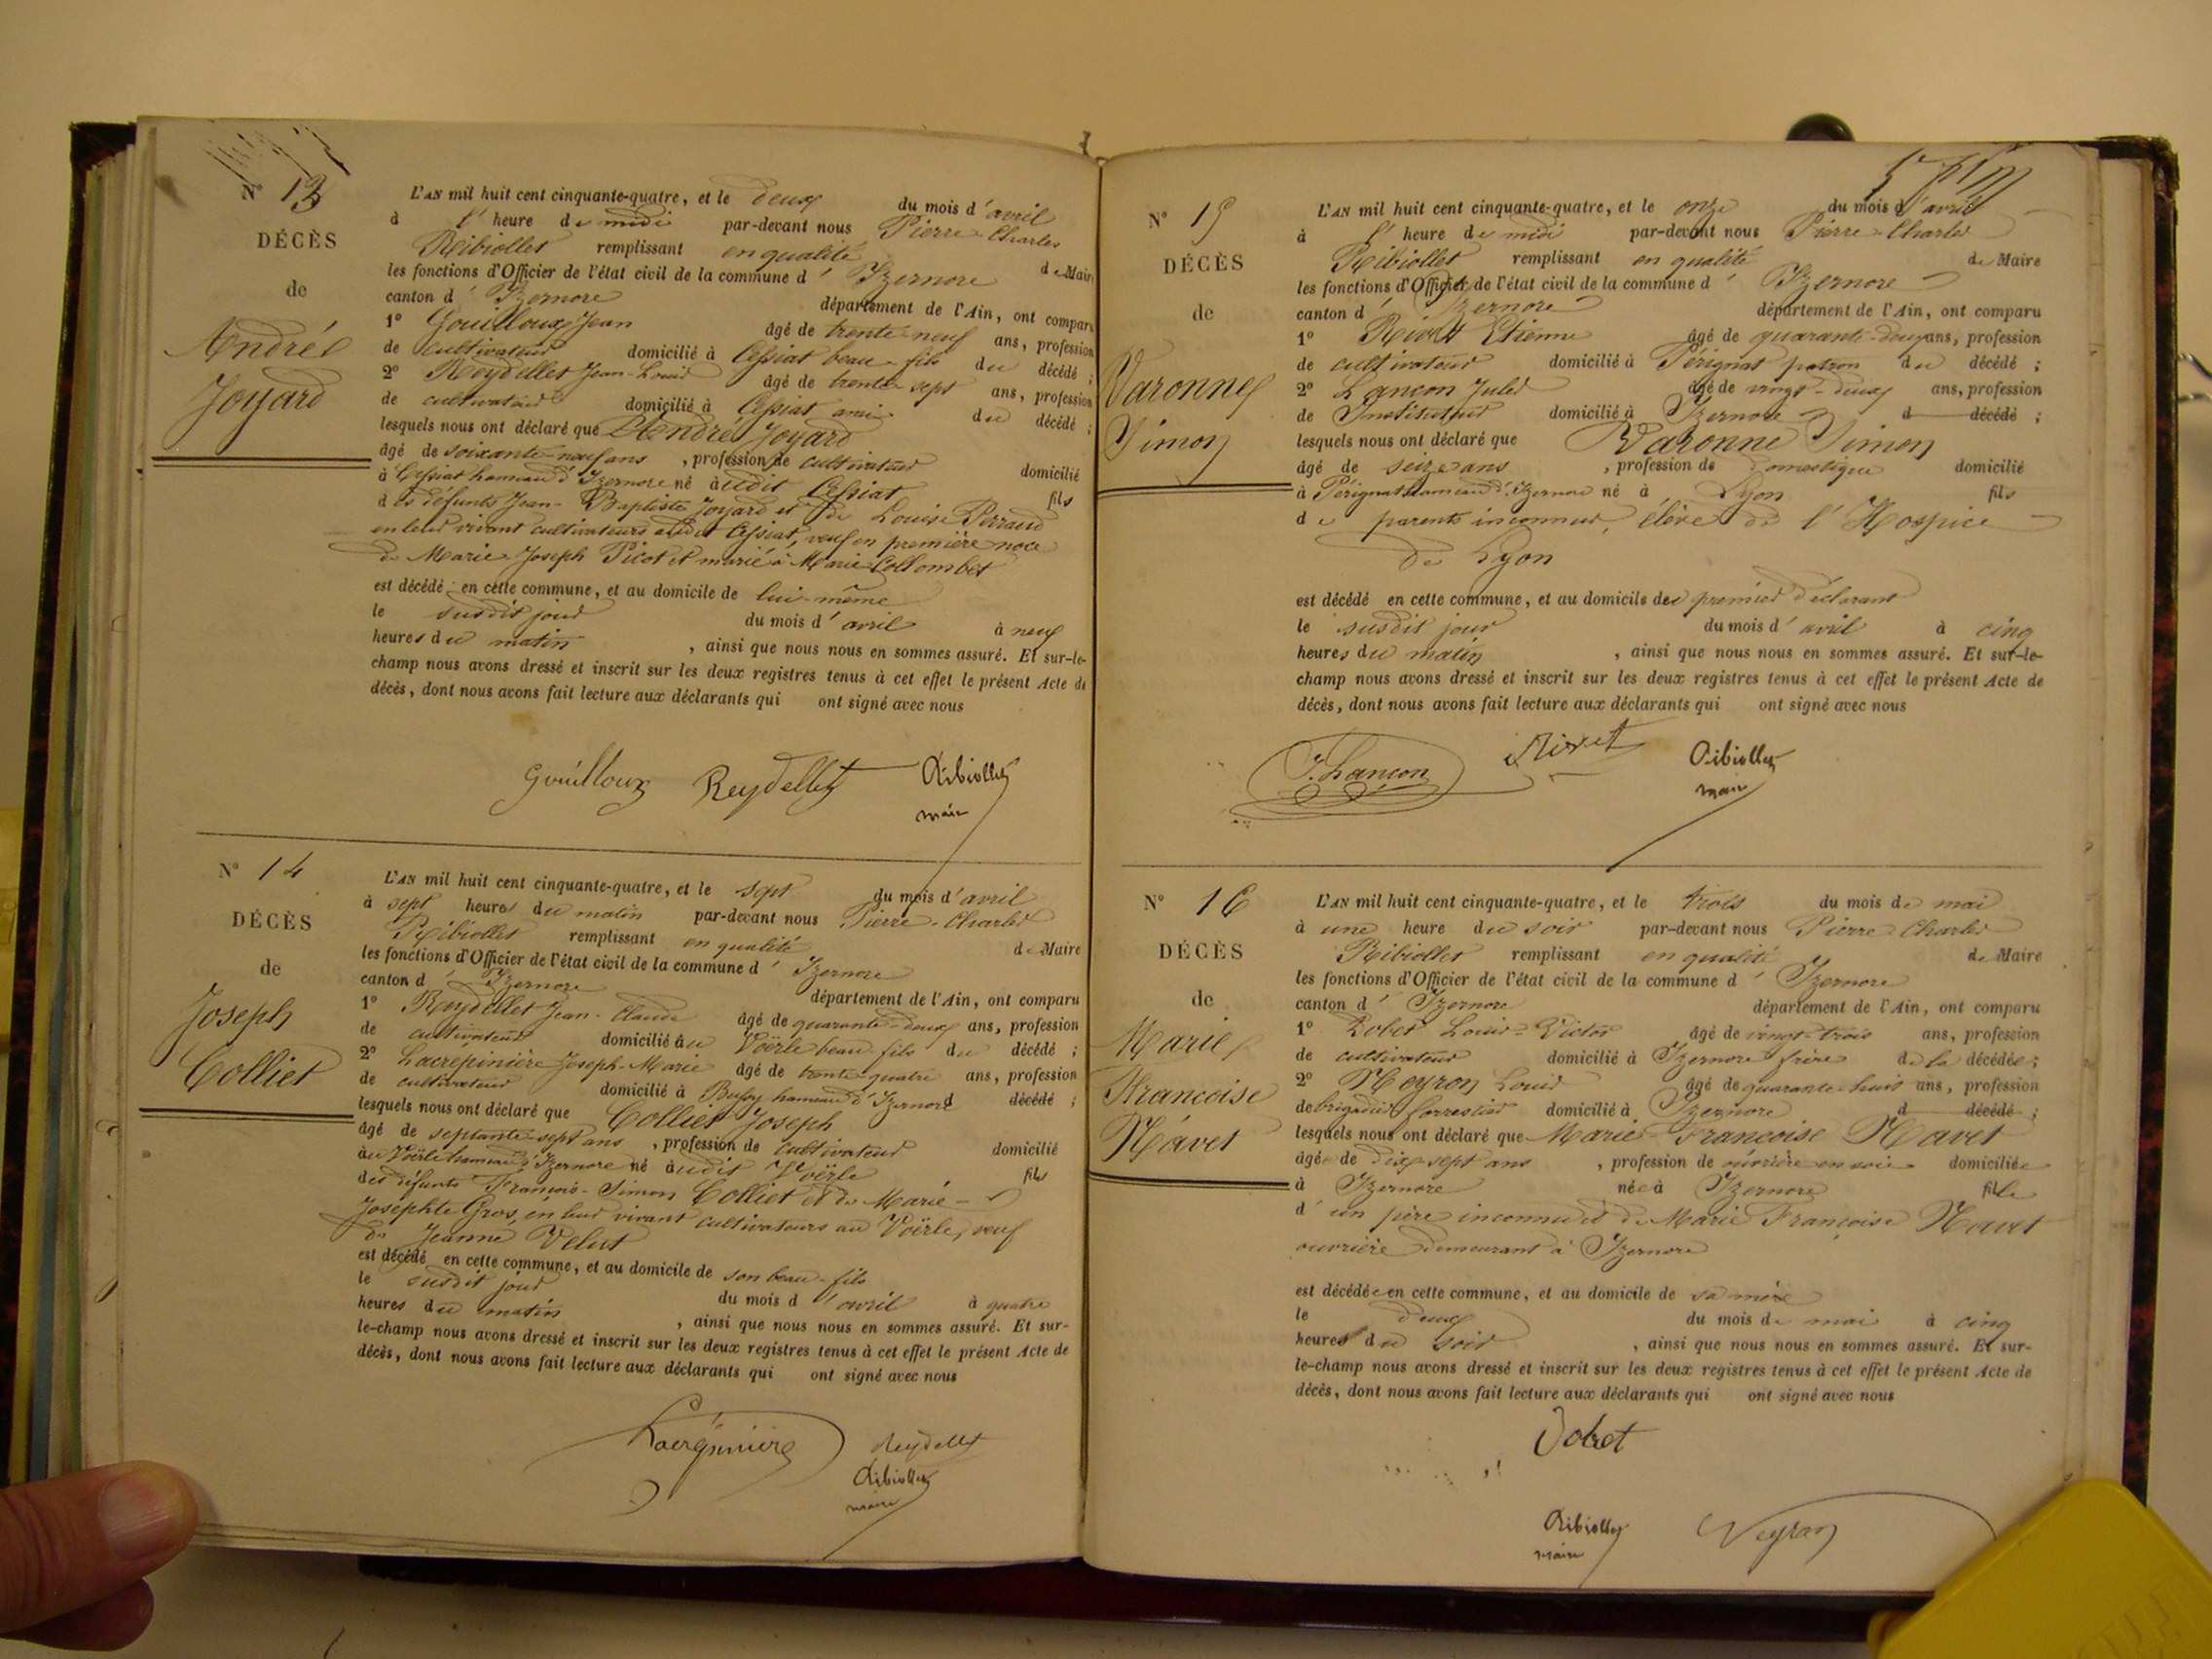 N° 13
DÉCÈS
de
André
Joyard
L'AN mil huit cent cinquante-quatre, et le deux du mois d'avril
à l'heure de midi par-devant nous Pierre-Charles
Ribiollet remplissant en qualité de Maire
les fonctions d'Officier de l'état civil de la commune d'Izernore
canton d'Izernore département de l'Ain, ont comparu
1° Gouilloux Jean âgé de trente-neuf ans, profession
de cultivateur domicilié à Cessiat beau-fils du décédé ;
2° Reydellet Jean-Louis âgé de trente-sept ans, profession
de cultivateur domicilié à Cessiat ami du décédé ;
lesquels nous ont déclaré que André Joyard
âgé de soixante-neuf ans, profession de cultivateur domicilié
à Cessiat hameau d'Izernore né audit Cessiat fils
des défunts Jean-Baptiste Joyard et de Louise Perraud
en leur vivant cultivateurs audit Cessiat, veuf en première noce
de Marie-Joseph Picot et marié à Marie Collombet
est décédé en cette commune, et au domicile de lui-même
le susdit jour du mois d'avril à neuf
heures du matin, ainsi que nous nous en sommes assuré. Et sur-le-
champ nous avons dressé et inscrit sur les deux registres tenus à cet effet le présent Acte de
décès, dont nous avons fait lecture aux déclarants qui ont signé avec nous
Gouilloux Reydellet Ribiollet
maire
N° 14
DÉCÈS
de
Joseph
Colliet
L'AN mil huit cent cinquante-quatre, et le sept du mois d'avril
à sept heures du matin par-devant nous Pierre-Charles
Ribiollet remplissant en qualité de Maire
les fonctions d'Officier de l'état civil de la commune d'Izernore
canton d'Izernore département de l'Ain, ont comparu
1° Reydellet Jean-Claude âgé de quarante-deux ans, profession
de cultivateur domicilié au Voërle beau-fils du décédé ;
2° Lacrepinière Joseph-Marie âgé de trente-quatre ans, profession
de cultivateur domicilié à Bussy hameau d'Izernore d décédé ;
lesquels nous ont déclaré que Colliet Joseph
âgé de septante-sept ans, profession de cultivateur domicilié
au Voërle hameau d'Izernore né audit Voërle fils
des défunts François-Simon Colliet et de Marie-
Josephte Gros, en leur vivant cultivateurs au Voërle, veuf
de Jeanne Velut
est décédé en cette commune, et au domicile de son beau-fils
le susdit jour du mois d'avril à quatre
heures du matin, ainsi que nous nous en sommes assuré. Et sur-
le-champ nous avons dressé et inscrit sur les deux registres tenus à cet effet le présent Acte de
décès, dont nous avons fait lecture aux déclarants qui ont signé avec nous
Reydellet
Ribiollet
maire
N° 15
DÉCÈS
de
Varonne
Simon
L'AN mil huit cent cinquante-quatre, et le onze du mois d'avril
à l'heure de midi par-devant nous Pierre-Charles
Ribiollet remplissant en qualité de Maire
les fonctions d'Officier de l'état civil de la commune d'Izernore
canton d'Izernore département de l'Ain, ont comparu
1° Rivet Etienne âgé de quarante-deux ans, profession
de cultivateur domicilié à Pérignat patron du décédé ;
2° Lançon Jules âgé de vingt-deux ans, profession
de Instituteur domicilié à Izernore d décédé ;
lesquels nous ont déclaré que Varonne Simon
âgé de seize ans, profession de domestique domicilié
à Pérignat hameau d'Izernore né à Lyon fils
de parents inconnus, élève de l'Hospice
de Lyon
est décédé en cette commune, et au domicile du premier déclarant
le susdit jour du mois d'avril à cinq
heures du matin, ainsi que nous nous en sommes assuré. Et sur-le-
champ nous avons dressé et inscrit sur les deux registres tenus à cet effet le présent Acte de
décès, dont nous avons fait lecture aux déclarants qui ont signé avec nous
J. Lançon Rivet Ribiollet
maire
N° 16
DÉCÈS
de
Marie
Francoise
Navet
L'AN mil huit cent cinquante-quatre, et le trois du mois de mai
à une heure du soir par-devant nous Pierre Charles
Ribiollet remplissant en qualité de Maire
les fonctions d'Officier de l'état civil de la commune d'Izernore
canton d'Izernore département de l'Ain, ont comparu
1° Louis-Victor âgé de vingt-trois ans, profession
de cultivateur domicilié à Izernore frère de la décédée ;
2° Neyron Louis âgé de quarante-huit ans, profession
de brigadier forrestier domicilié à Izernore d décédé ;
lesquels nous ont déclaré que Marie-Francoise Navet
âgée de dix-sept ans, profession de ouvrière en soie domiciliée
à Izernore née à Izernore fille
d'un père inconnu et de Marie Françoise Navet
ouvrière demeurant à Izernore
est décédée en cette commune, et au domicile de sa mère
le deux du mois de mai à cinq
heures du soir, ainsi que nous nous en sommes assuré. Et sur-
le-champ nous avons dressé et inscrit sur les deux registres tenus à cet effet le présent Acte de
décès, dont nous avons fait lecture aux déclarants qui ont signé avec nous
Ribiollet Neyron
maire